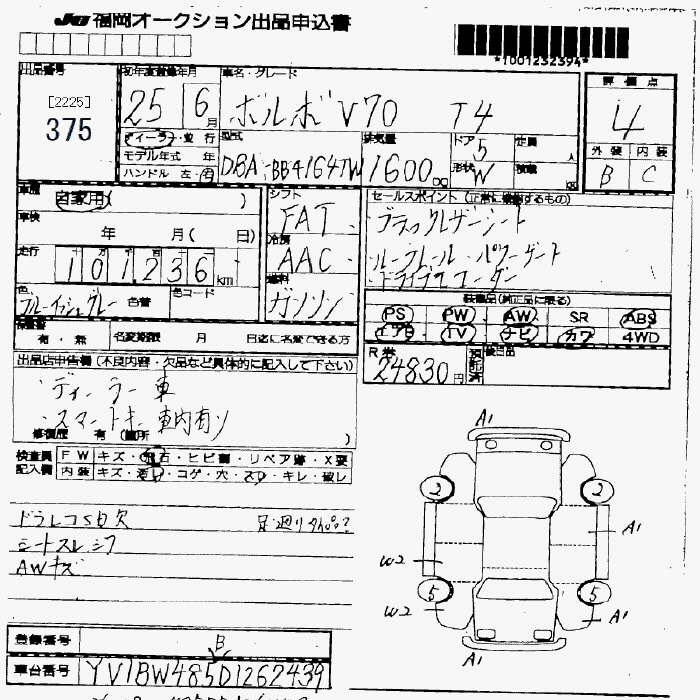 JU 福岡オークション出品申込書
*1001232394*
出品番号 初年度登録年月 車名・グレード 評価点
[2225]
375
25 6月 ボルボ V70 T4
4
ディーラー・並行 型式 排気量 ドア 定員 人
モデル年式 年
ハンドル 左・右
DBA-BB4164TW 1600cc 5 形状 W 積載 KG
外装 内装
B C
車歴 自家用( )
シフト FAT
セールスポイント (正常に稼働するもの)
車検 年 月( 日)
冷房 AAC
ブラックレザーシート
ルーフレール・パワーゲート
ドライブレコーダー
走行 101,236km
色 ブルーイッシュグレー 色替 色コード
燃料 ガソリン
装備品(純正品に限る)
PS PW AW SR ABS
エアB TV ナビ カワ 4WD
有・無 名変期限 月 日迄に名変できる方
R券 24830円 預託済 後日品
出品店申告欄(不良内容・欠品など具体的に記入して下さい)
・ディーラー車
・スマートキー車内有り
修復歴 有 (箇所 )
検査員 FW キズ・飛石・ヒビ割・リペア跡・X要
記入欄 内装 キズ・汚れ・コゲ・穴・スレ・キレ・破レ
ドラレコSD欠
シートスレ シワ
AWキズ
A1
2 2
A1
W2
5 5
W2 A1
A1
登録番号
B
車台番号 YV1BW485D1262439